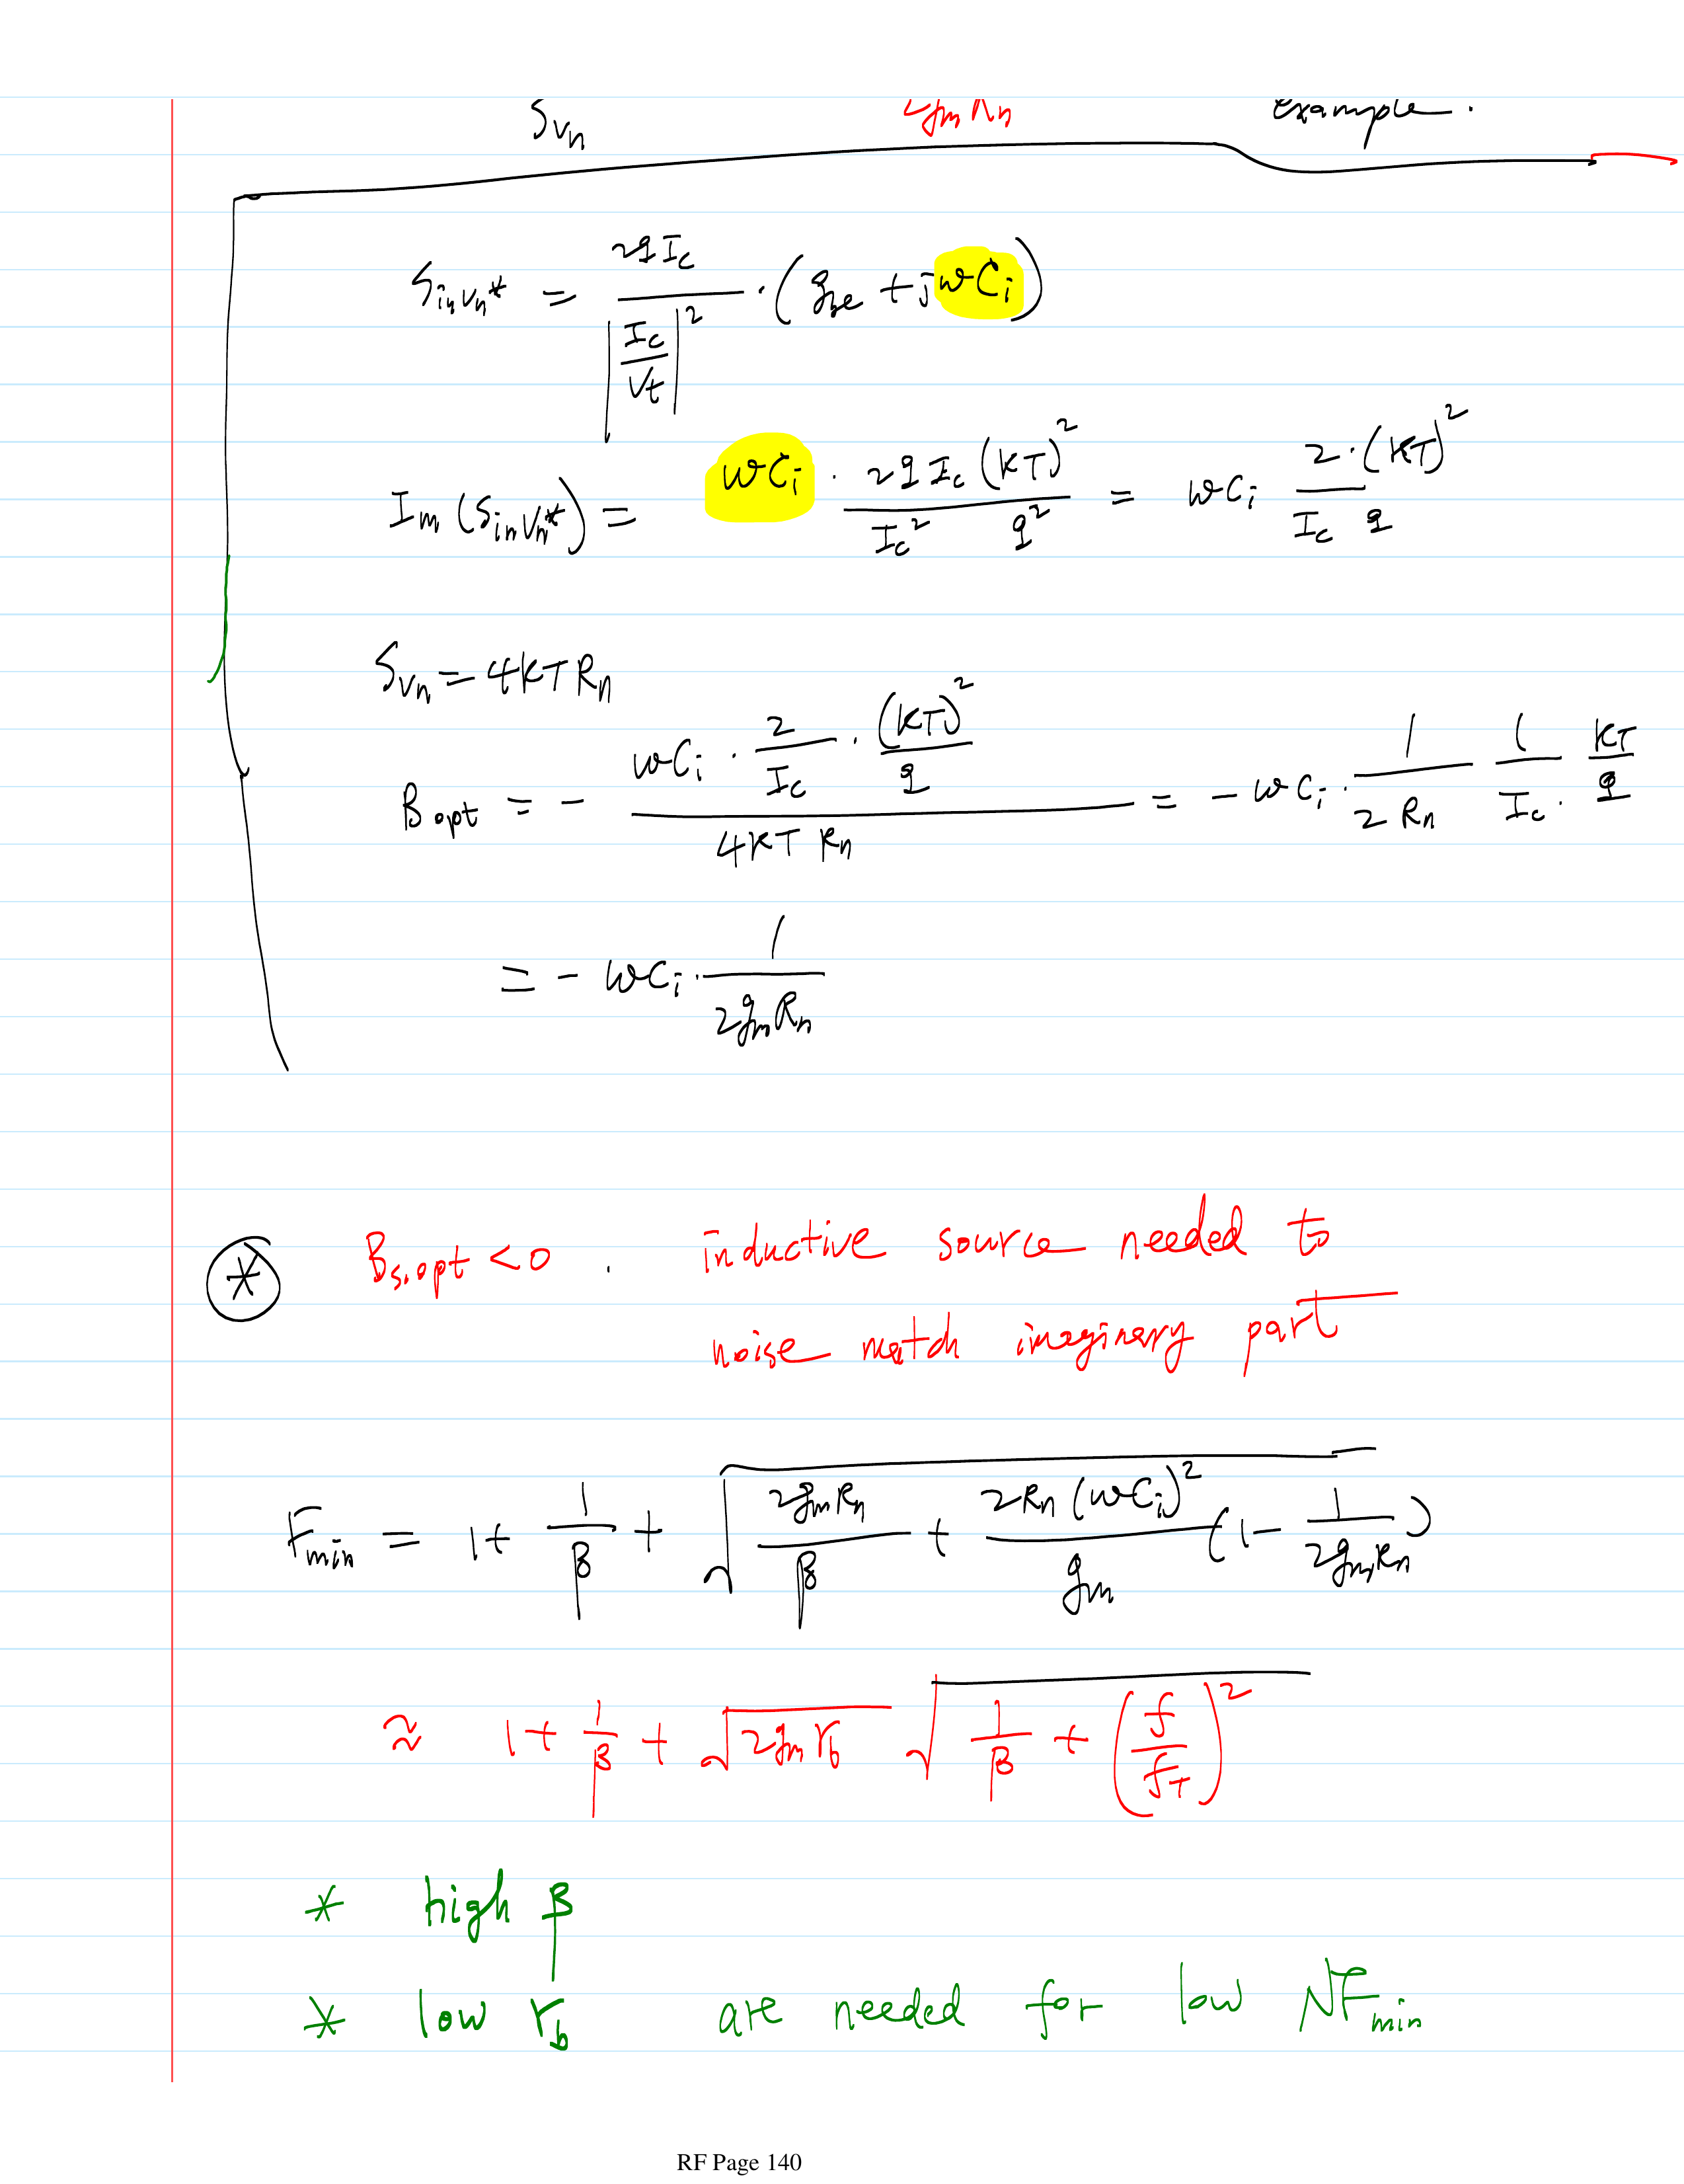 S_{v_n} 2g_m R_n example.
S_{i_n v_n^*} = \frac{2qI_c}{\left|\frac{I_c}{V_t}\right|^2} \cdot (g_{be} + jωC_i)
I_m(S_{i_n v_n^*}) = ωC_i \cdot \frac{2qI_c (KT)^2}{I_c^2 q^2} = ωC_i \frac{2 \cdot (KT)^2}{I_c q}
S_{v_n} = 4KTR_n
B_{opt} = - \frac{ωC_i \cdot \frac{2}{I_c} \cdot \frac{(KT)^2}{q}}{4KT R_n} = -ωC_i \cdot \frac{1}{2R_n} \frac{1}{I_c} \cdot \frac{KT}{q}
= -ωC_i \cdot \frac{1}{2g_m R_n}
* B_{s.opt} < 0 . inductive source needed to
noise match imaginary part
F_{min} = 1 + \frac{1}{β} + \sqrt{\frac{2g_m R_n}{β} + \frac{2R_n (ωC_i)^2}{g_m} (1 - \frac{1}{2g_m R_n})}
≈ 1 + \frac{1}{β} + \sqrt{2g_m r_b} \sqrt{\frac{1}{β} + \left(\frac{f}{f_T}\right)^2}
* high β
* low r_b are needed for low NF_{min}
RF Page 140